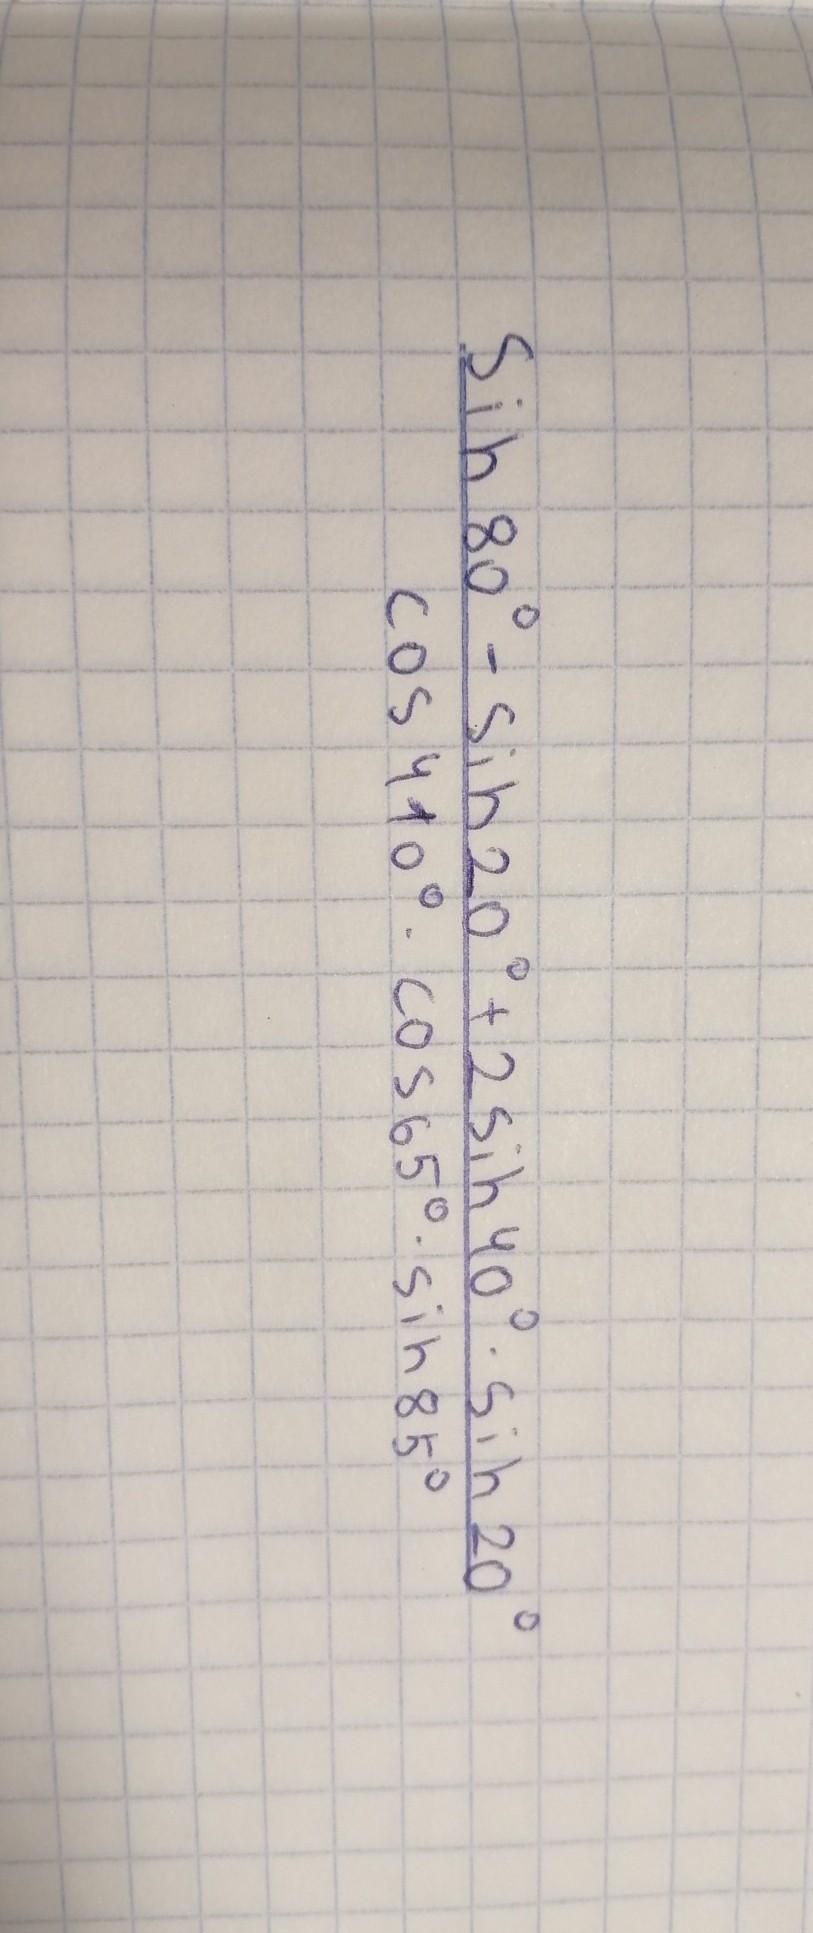 sin 80° - sin 20° + 2 sin 40° · sin 20°
cos 410° · cos 65° · sin 85°